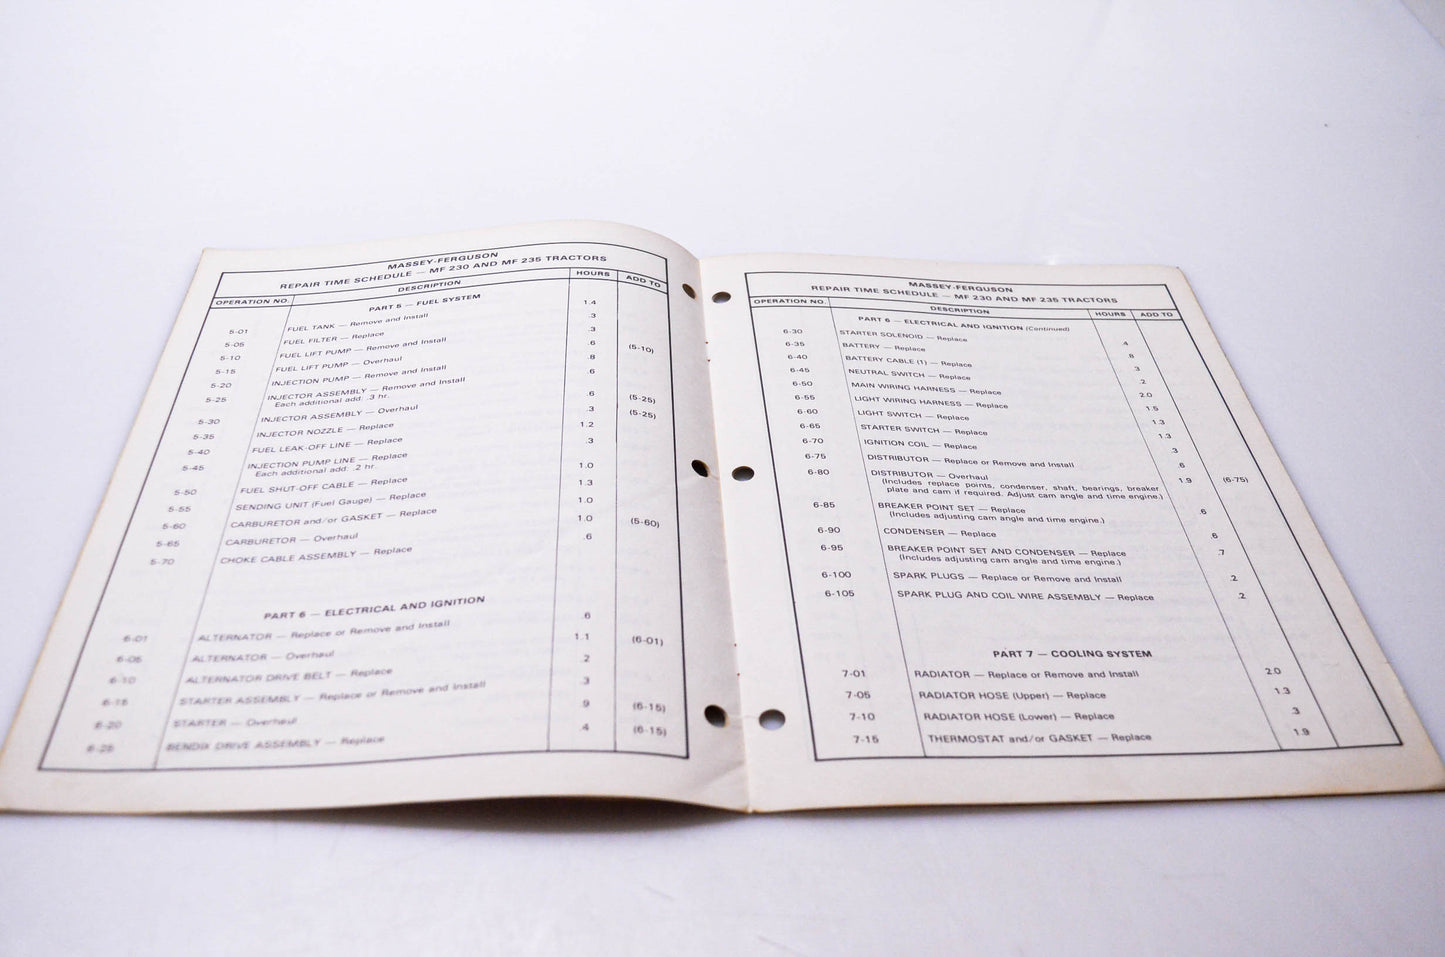 MASSEY-FERGUSON
REPAIR TIME SCHEDULE — MF 230 AND MF 235 TRACTORS
OPERATION NO. DESCRIPTION HOURS ADD TO
PART 5 — FUEL SYSTEM
5-01 FUEL TANK — Remove and Install 1.4
5-05 FUEL FILTER — Replace .3
5-10 FUEL LIFT PUMP — Remove and Install .3
5-15 FUEL LIFT PUMP — Overhaul .6 (5-10)
5-20 INJECTION PUMP — Remove and Install .8
5-25 INJECTOR ASSEMBLY — Remove and Install .6
Each additional add. .3 hr.
5-30 INJECTOR ASSEMBLY — Overhaul .6 (5-25)
5-35 INJECTOR NOZZLE — Replace .3 (5-25)
5-40 FUEL LEAK-OFF LINE — Replace 1.2
5-45 INJECTION PUMP LINE — Replace .3
Each additional add. .2 hr.
5-50 FUEL SHUT-OFF CABLE — Replace 1.0
5-55 SENDING UNIT (Fuel Gauge) — Replace 1.3
5-60 CARBURETOR and/or GASKET — Replace 1.0
5-65 CARBURETOR — Overhaul 1.0 (5-60)
5-70 CHOKE CABLE ASSEMBLY — Replace .6
PART 6 — ELECTRICAL AND IGNITION
6-01 ALTERNATOR — Replace or Remove and Install .6
6-05 ALTERNATOR — Overhaul 1.1 (6-01)
6-10 ALTERNATOR DRIVE BELT — Replace .2
6-15 STARTER ASSEMBLY — Replace or Remove and Install .3
6-20 STARTER — Overhaul .9 (6-15)
6-25 BENDIX DRIVE ASSEMBLY — Replace .4 (6-15)
MASSEY-FERGUSON
REPAIR TIME SCHEDULE — MF 230 AND MF 235 TRACTORS
OPERATION NO. DESCRIPTION HOURS ADD TO
PART 6 — ELECTRICAL AND IGNITION (Continued)
6-30 STARTER SOLENOID — Replace .4
6-35 BATTERY — Replace .8
6-40 BATTERY CABLE (1) — Replace .3
6-45 NEUTRAL SWITCH — Replace .2
6-50 MAIN WIRING HARNESS — Replace 2.0
6-55 LIGHT WIRING HARNESS — Replace 1.5
6-60 LIGHT SWITCH — Replace 1.3
6-65 STARTER SWITCH — Replace 1.3
6-70 IGNITION COIL — Replace .3
6-75 DISTRIBUTOR — Replace or Remove and Install .6
6-80 DISTRIBUTOR — Overhaul 1.9 (6-75)
(Includes replace points, condenser, shaft, bearings, breaker
plate and cam if required. Adjust cam angle and time engine.)
6-85 BREAKER POINT SET — Replace .6
(Includes adjusting cam angle and time engine.)
6-90 CONDENSER — Replace .6
6-95 BREAKER POINT SET AND CONDENSER — Replace .7
(Includes adjusting cam angle and time engine.)
6-100 SPARK PLUGS — Replace or Remove and Install .2
6-105 SPARK PLUG AND COIL WIRE ASSEMBLY — Replace .2
PART 7 — COOLING SYSTEM
7-01 RADIATOR — Replace or Remove and Install 2.0
7-05 RADIATOR HOSE (Upper) — Replace 1.3
7-10 RADIATOR HOSE (Lower) — Replace .3
7-15 THERMOSTAT and/or GASKET — Replace 1.9